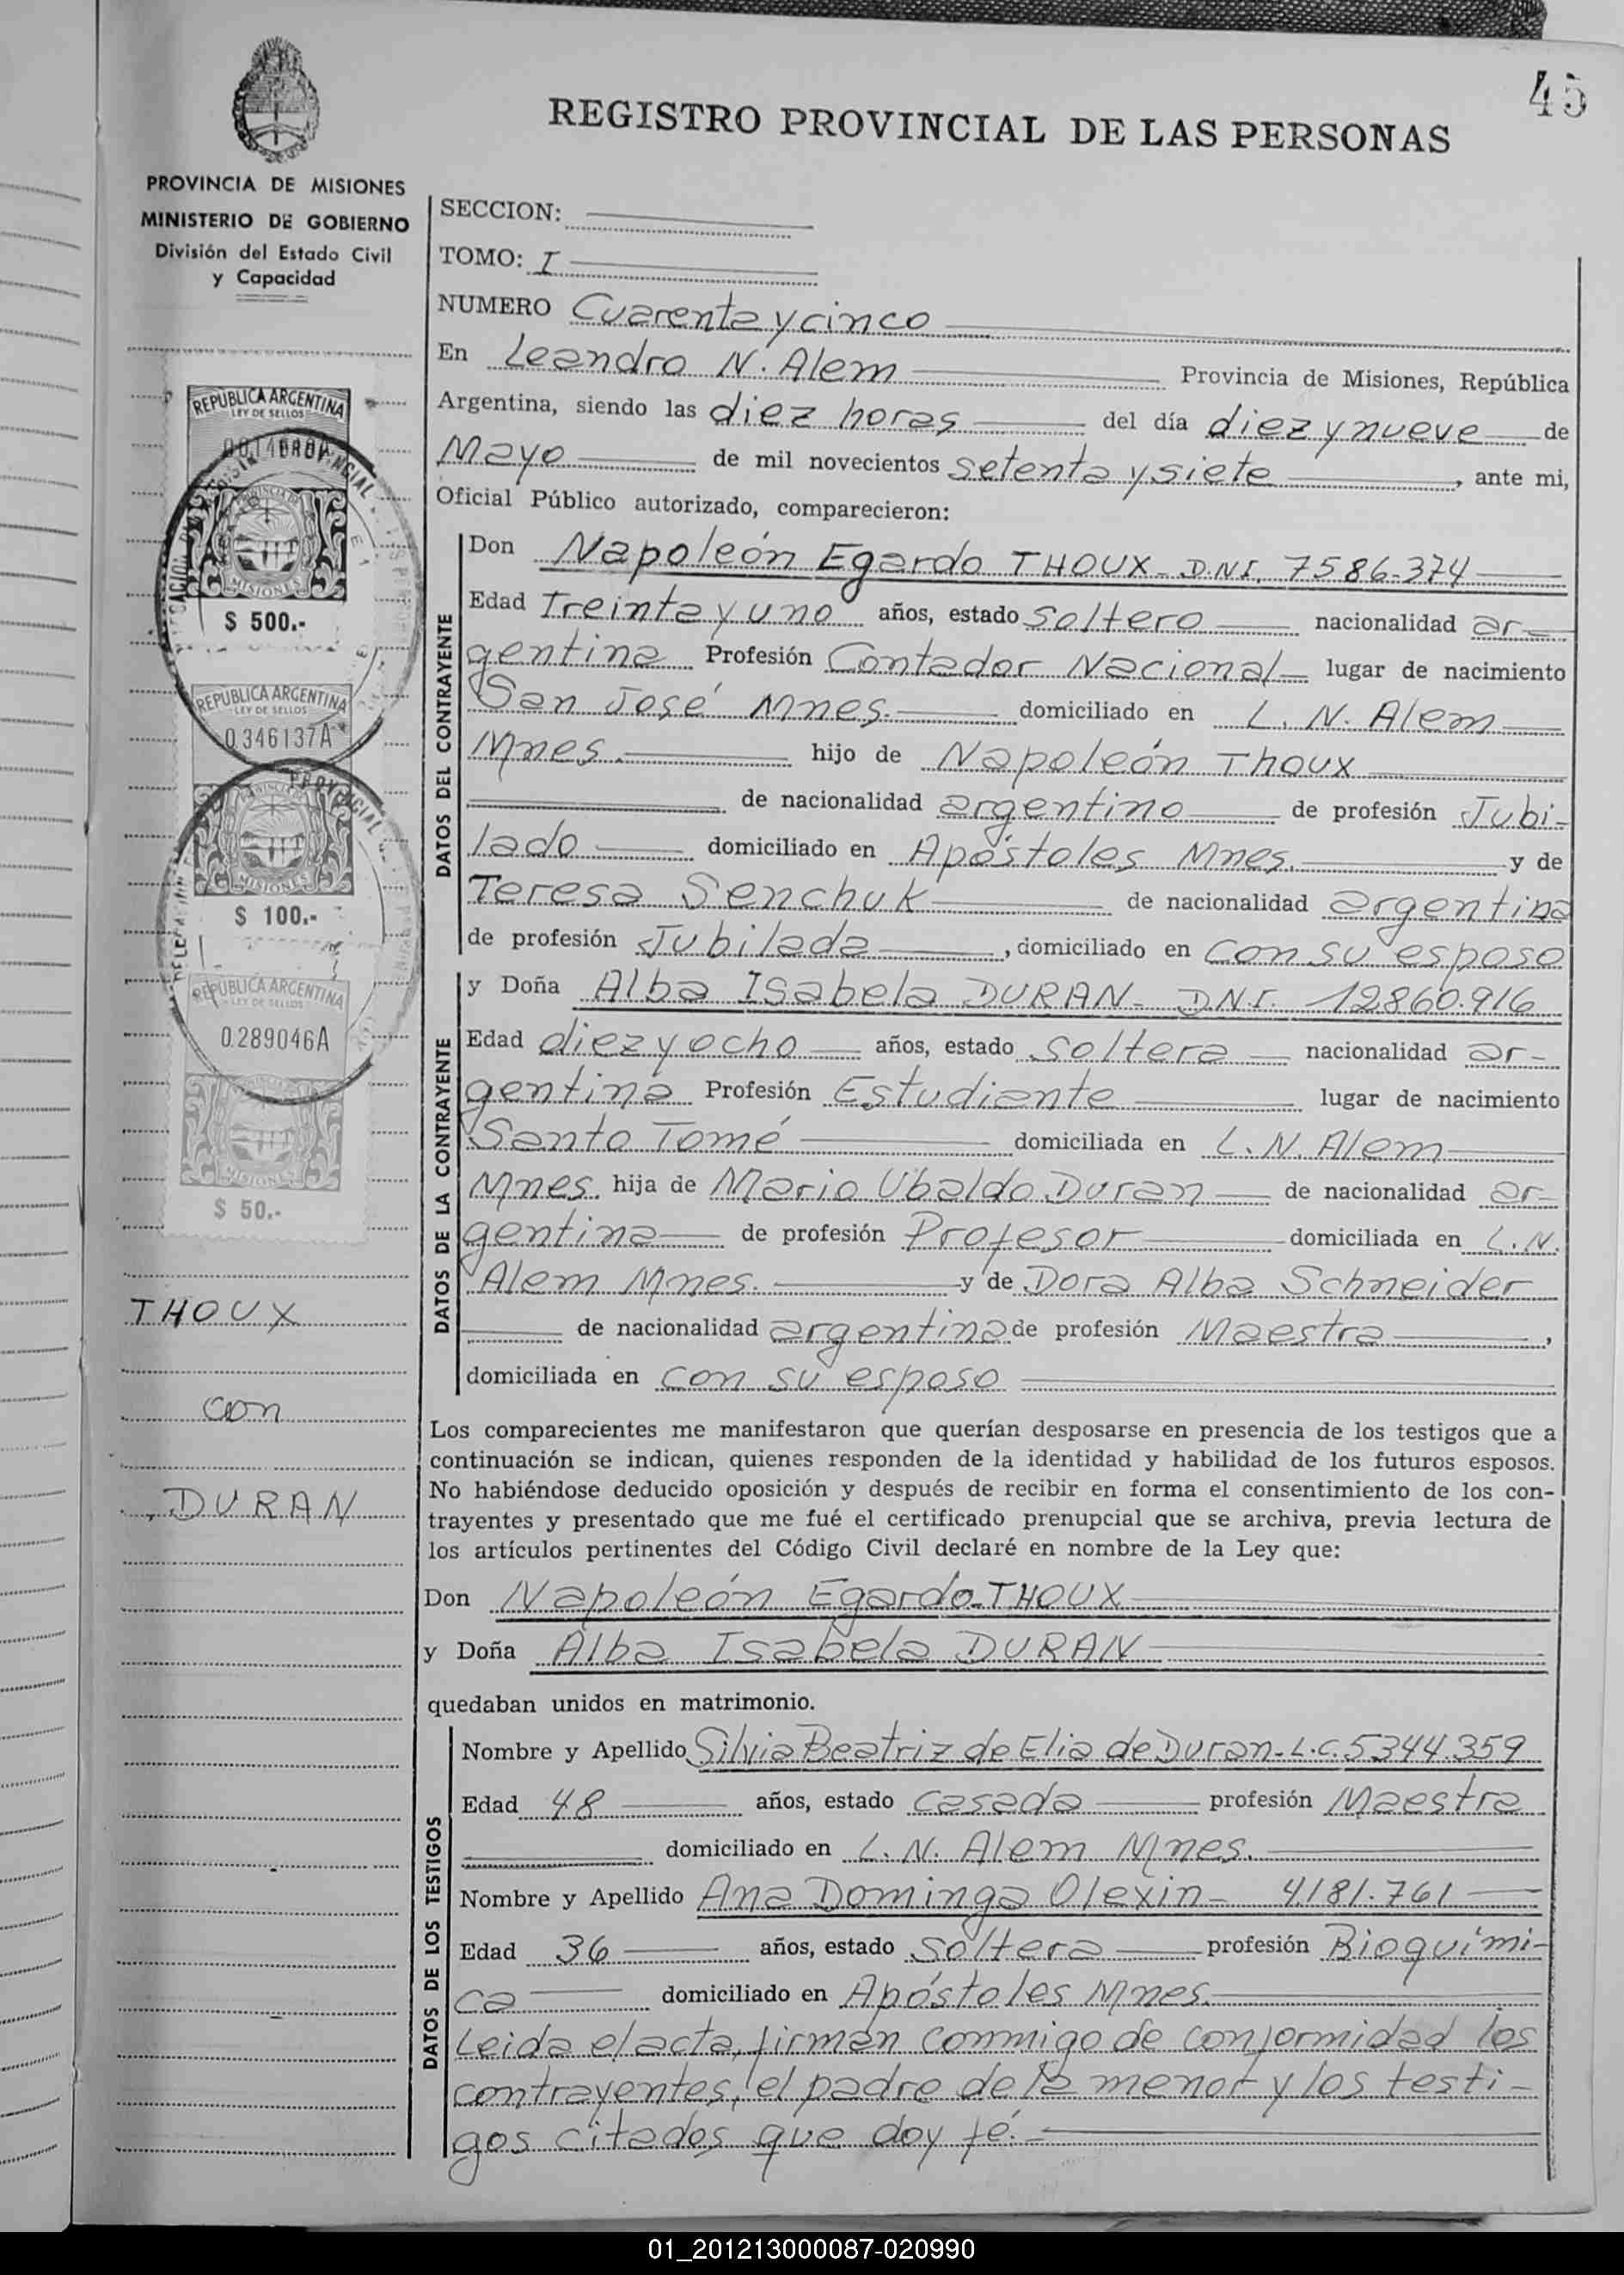 45
REGISTRO PROVINCIAL DE LAS PERSONAS
PROVINCIA DE MISIONES
MINISTERIO DE GOBIERNO
División del Estado Civil
y Capacidad
SECCION:
TOMO: I
NUMERO Cuarenta y cinco
En Leandro N. Alem Provincia de Misiones, República
Argentina, siendo las diez horas del día diez y nueve de
Mayo de mil novecientos setenta y siete, ante mi,
Oficial Público autorizado, comparecieron:
DATOS DEL CONTRAYENTE
Don Napoleón Egardo THOUX - D.N.I. 7586.374
Edad Treinta y uno años, estado Soltero nacionalidad ar-
gentina Profesión Contador Nacional lugar de nacimiento
San José Mnes. domiciliado en L. N. Alem
Mnes. hijo de Napoleón Thoux
de nacionalidad argentino de profesión Jubi-
lado domiciliado en Apóstoles Mnes. y de
Teresa Senchuk de nacionalidad argentina
de profesión Jubilada, domiciliado en con su esposo
DATOS DE LA CONTRAYENTE
y Doña Alba Isabela DURAN - D.N.I. 12860.916
Edad diez y ocho años, estado Soltera nacionalidad ar-
gentina Profesión Estudiante lugar de nacimiento
Santo Tomé domiciliada en L. N. Alem
Mnes. hija de Mario Ubaldo Duran de nacionalidad ar-
gentina de profesión Profesor domiciliada en L. N.
Alem Mnes. y de Dora Alba Schneider
de nacionalidad argentina de profesión Maestra,
domiciliada en con su esposo
Los comparecientes me manifestaron que querían desposarse en presencia de los testigos que a
continuación se indican, quienes responden de la identidad y habilidad de los futuros esposos.
No habiéndose deducido oposición y después de recibir en forma el consentimiento de los con-
trayentes y presentado que me fué el certificado prenupcial que se archiva, previa lectura de
los artículos pertinentes del Código Civil declaré en nombre de la Ley que:
Don Napoleón Egardo THOUX
y Doña Alba Isabela DURAN
quedaban unidos en matrimonio.
DATOS DE LOS TESTIGOS
Nombre y Apellido Silvia Beatriz de Elia de Duran - L.C. 5344.359
Edad 48 años, estado casada profesión Maestra
domiciliado en L. N. Alem Mnes.
Nombre y Apellido Ana Dominga Olexin - 4.181.761
Edad 36 años, estado Soltera profesión Bioquími-
ca domiciliado en Apóstoles Mnes.
Leida el acta, firman conmigo de conformidad los
contrayentes, el padre de la menor y los testi-
gos citados que doy fé.
REPUBLICA ARGENTINA
LEY DE SELLOS
MISIONES
$ 500.-
REPUBLICA ARGENTINA
LEY DE SELLOS
0.346137A
MISIONES
$ 100.-
REPUBLICA ARGENTINA
LEY DE SELLOS
0.289046A
MISIONES
$ 50.-
THOUX
con
DURAN
01_201213000087-020990